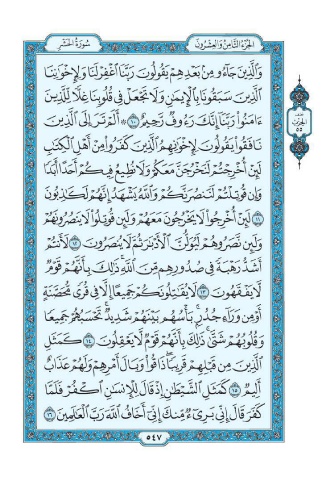 سُورَةُ الحَشْرِ
الجُزْءُ الثَّامِنُ وَالعِشْرُونَ
وَٱلَّذِينَ جَآءُو مِنۢ بَعْدِهِمْ يَقُولُونَ رَبَّنَا ٱغْفِرْ لَنَا وَلِإِخْوَٰنِنَا
ٱلَّذِينَ سَبَقُونَا بِٱلْإِيمَٰنِ وَلَا تَجْعَلْ فِى قُلُوبِنَا غِلًّا لِّلَّذِينَ
ءَامَنُوا۟ رَبَّنَآ إِنَّكَ رَءُوفٌ رَّحِيمٌ ١٠ ۞ أَلَمْ تَرَ إِلَى ٱلَّذِينَ
نَافَقُوا۟ يَقُولُونَ لِإِخْوَٰنِهِمُ ٱلَّذِينَ كَفَرُوا۟ مِنْ أَهْلِ ٱلْكِتَٰبِ
لَئِنْ أُخْرِجْتُمْ لَنَخْرُجَنَّ مَعَكُمْ وَلَا نُطِيعُ فِيكُمْ أَحَدًا أَبَدًا
وَإِن قُوتِلْتُمْ لَنَنصُرَنَّكُمْ وَٱللَّهُ يَشْهَدُ إِنَّهُمْ لَكَٰذِبُونَ
١١ لَئِنْ أُخْرِجُوا۟ لَا يَخْرُجُونَ مَعَهُمْ وَلَئِن قُوتِلُوا۟ لَا يَنصُرُونَهُمْ
وَلَئِن نَّصَرُوهُمْ لَيُوَلُّنَّ ٱلْأَدْبَٰرَ ثُمَّ لَا يُنصَرُونَ ١٢ لَأَنتُمْ
أَشَدُّ رَهْبَةً فِى صُدُورِهِم مِّنَ ٱللَّهِ ذَٰلِكَ بِأَنَّهُمْ قَوْمٌ
لَّا يَفْقَهُونَ ١٣ لَا يُقَٰتِلُونَكُمْ جَمِيعًا إِلَّا فِى قُرًى مُّحَصَّنَةٍ
أَوْ مِن وَرَآءِ جُدُرٍۭ بَأْسُهُم بَيْنَهُمْ شَدِيدٌ تَحْسَبُهُمْ جَمِيعًا
وَقُلُوبُهُمْ شَتَّىٰ ذَٰلِكَ بِأَنَّهُمْ قَوْمٌ لَّا يَعْقِلُونَ ١٤ كَمَثَلِ
ٱلَّذِينَ مِن قَبْلِهِمْ قَرِيبًا ذَاقُوا۟ وَبَالَ أَمْرِهِمْ وَلَهُمْ عَذَابٌ
أَلِيمٌ ١٥ كَمَثَلِ ٱلشَّيْطَٰنِ إِذْ قَالَ لِلْإِنسَٰنِ ٱكْفُرْ فَلَمَّا
كَفَرَ قَالَ إِنِّى بَرِىٓءٌ مِّنكَ إِنِّىٓ أَخَافُ ٱللَّهَ رَبَّ ٱلْعَٰلَمِينَ ١٦
٥٤٧
الحزب
٥٥